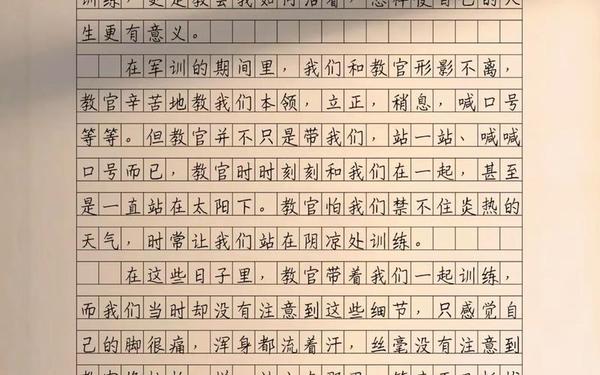 训练，更是教会我如何活着，怎样使自己的人
生更有意义。
在军训的期间里，我们和教官形影不离，
教官辛苦地教我们本领，立正，稍息，喊口号
等等。但教官并不只是带我们，站一站、喊喊
口号而已，教官时时刻刻和我们在一起，甚至
是一直站在太阳下。教官怕我们禁不住炎热的
天气，时常让我们站在阴凉处训练。
在这些日子里，教官带着我们一起训练，
而我们当时却没有注意到这些细节，只感觉自
己的脚很痛，浑身都流着汗，丝毫没有注意到